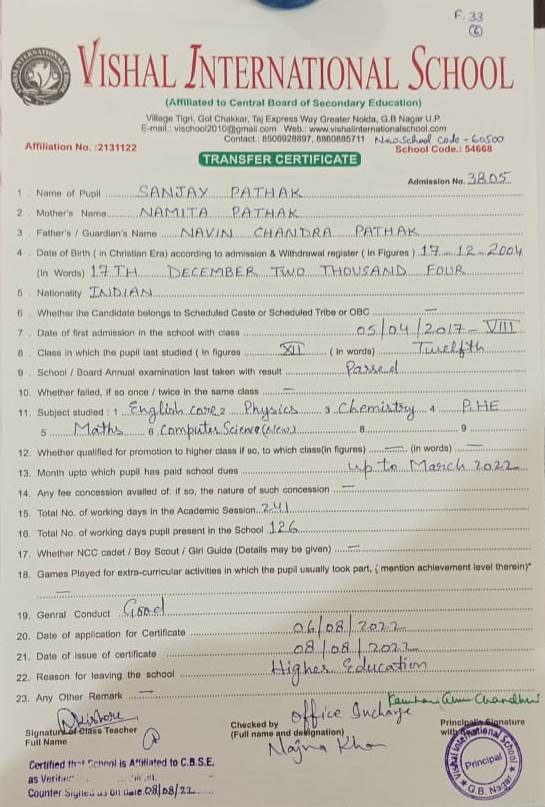 F. 33
6
VISHAL INTERNATIONAL SCHOOL
(Affiliated to Central Board of Secondary Education)
Village Tigri, Gol Chakkar, Taj Express Way Greater Noida, G.B Nagar U.P.
E-mail.: vischool2010@gmail.com Web.: www.vishalinternationalschool.com
Contact.: 8506928897, 8860885711 New School Code - 60500
Affiliation No. :2131122 School Code.: 54668
TRANSFER CERTIFICATE
Admission No. 3805
1 . Name of Pupil SANJAY PATHAK
2 . Mother's Name NAMITA PATHAK
3 . Father's / Guardian's Name NAVIN CHANDRA PATHAK
4 . Date of Birth ( in Christian Era) according to admission & Withdrawal register ( In Figures ) 17-12-2004
(In Words) 17TH DECEMBER TWO THOUSAND FOUR
5 . Nationality INDIAN
6 . Whether the Candidate belongs to Scheduled Caste or Scheduled Tribe or OBC —
7 . Date of first admission in the school with class 05/04/2017 - VIII
8 . Class in which the pupil last studied ( In figures XII ( In words) Twelfth
9 . School / Board Annual examination last taken with result Passed
10. Whether failed, if so once / twice in the same class —
11. Subject studied : 1 English core 2 Physics 3 Chemistry 4 P.HE
5 Maths 6 Computer Science (New) 8 9
12. Whether qualified for promotion to higher class if so, to which class(in figures) — (in words) —
13. Month upto which pupil has paid school dues up to March 2022
14. Any fee concession availed of: if so, the nature of such concession —
15. Total No. of working days in the Academic Session 241
16. Total No. of working days pupil present in the School 126
17. Whether NCC cadet / Boy Scout / Girl Guide (Details may be given) —
18. Games Played for extra-curricular activities in which the pupil usually took part, ( mention achievement level therein)*
—
19. Genral Conduct Good
20. Date of application for Certificate 06/08/2022
21. Date of issue of certificate 08/08/2022
22. Reason for leaving the school Higher Education
23. Any Other Remark —
Signature of Class Teacher
Full Name
Checked by Office Incharge
(Full name and designation)
Najma Khan
Principal's Signature
with
Vishal International School
Principal
G.B. Nagar
Certified that School is Affiliated to C.B.S.E.
as
Counter Signed us on date. 08/08/22